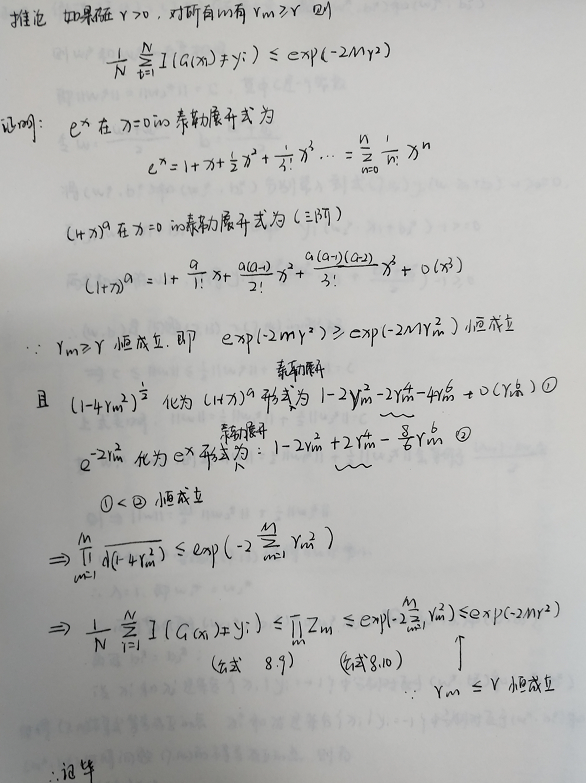 推论 如果存在 γ>0, 对所有m有 γm≥γ 则
1/N Σ_{i=1}^{N} I(G(xi)≠yi) ≤ exp(-2Mγ²)
证明: e^x 在 x=0的泰勒展开式为
e^x = 1+x+1/2 x²+1/3! x³ ⋯ = Σ_{n=0}^{n} 1/n! x^n
(1+x)^a 在 x=0 的泰勒展开式为 (三阶)
(1+x)^a = 1+ a/1! x+ a(a-1)/2! x²+ a(a-1)(a-2)/3! x³+ o(x³)
∵ γm≥γ 恒成立. 即 exp(-2mγ²) ≥ exp(-2Mγm²) 恒成立
泰勒展开
且 (1-4γm²)^{1/2} 化为 (1+x)^a 形式为 1-2γm²-2γm⁴-4γm⁶+o(γm⁶) ①
泰勒展开
e^{-2γm²} 化为 e^x 形式为: 1-2γm²+2γm⁴-8/6 γm⁶ ②
①<② 恒成立
⇒ Π_{m=1}^{M} √(1-4γm²) ≤ exp(-2 Σ_{m=1}^{M} γm²)
⇒ 1/N Σ_{i=1}^{N} I(G(xi)≠yi) ≤ Π_m Zm ≤ exp(-2Σ_{m=1}^{M} γm²) ≤ exp(-2Mγ²)
(公式 8.9) (公式8.10) ↑
∵ γm ≤ γ 恒成立
∴证毕